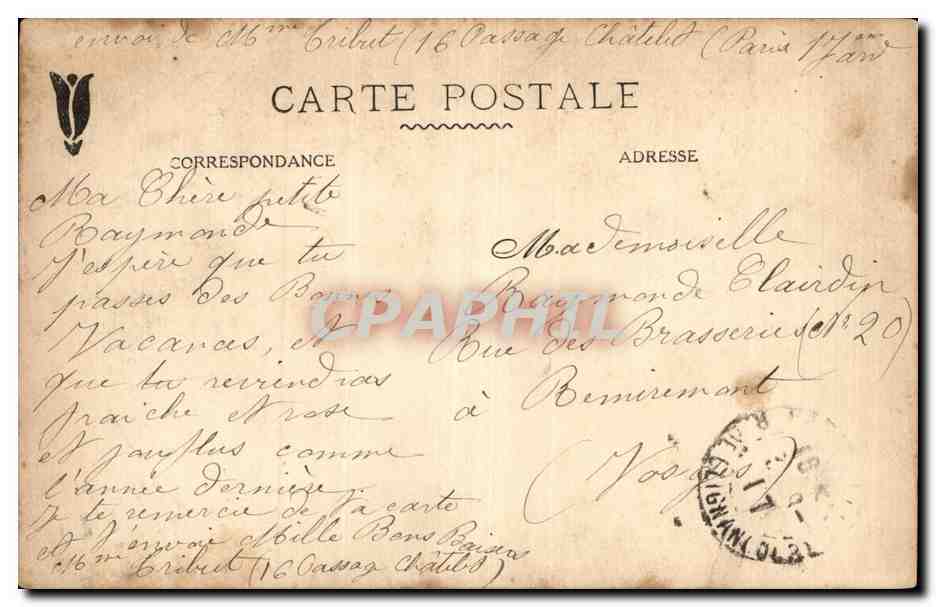 envoi de Mme Tribut (16 Passage Châtelet (Paris 17
CARTE POSTALE
CORRESPONDANCE
ADRESSE
Ma Chère petite
Raymonde
J'espère que tu
passes des Bonnes
Vacances, et
que tu reviendras
fraiche et rose
et joufflus comme
l'année dernière.
Je te remercie de ta carte
et t'envoie Mille Bons Baisers
Mme Tribut (16 Passage Châtelet)
Mademoiselle
Raymonde Clairdin
Rue des Brasseries (No 20)
à Remiremont
(Vosges)
CPAPHIL